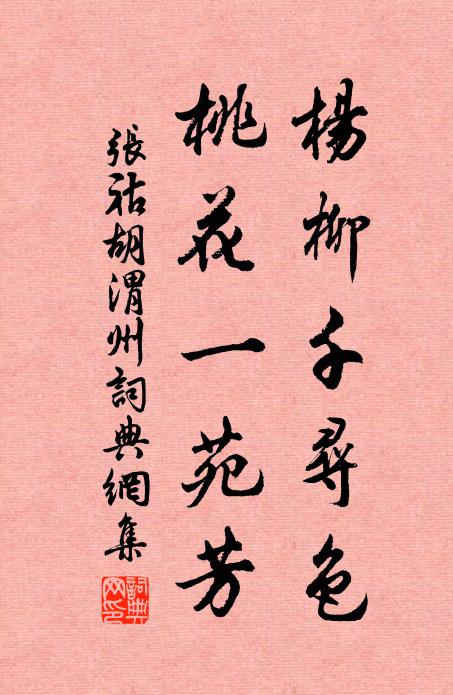 楊柳千尋色
桃花一苑芳
張祜胡渭州詞典網集
詞典
网印